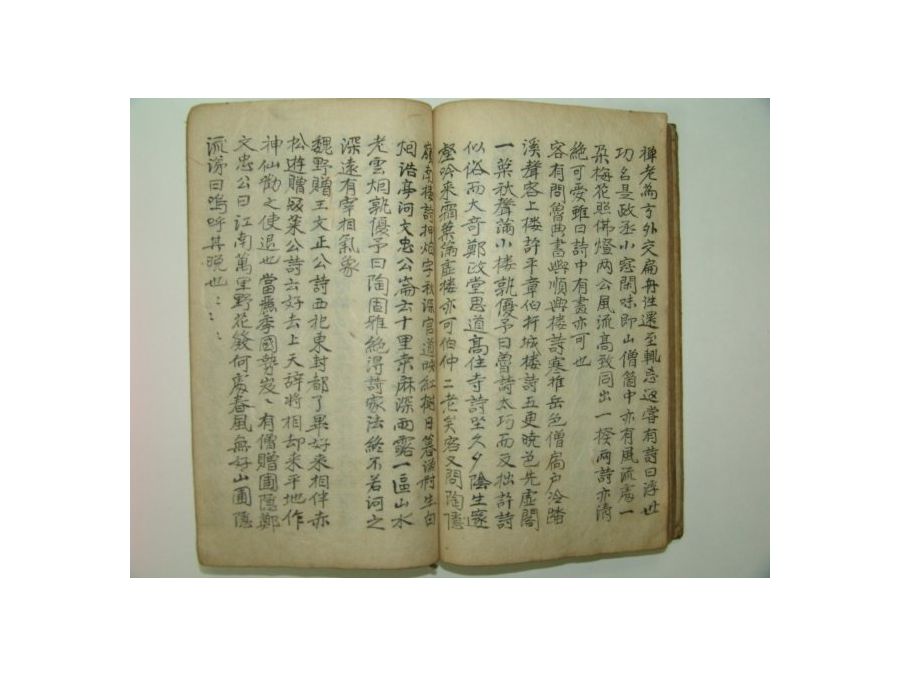 禅老為方外交扁舟往還至輒忘返嘗有詩曰浮世
功名是政丞小窓閑味即山僧箇中亦有風流處一
朶梅花照佛燈两公風流高致同出一揆两詩亦清
絶可愛雖曰詩中有畫亦可也
客有問魯典書嶼順興楼詩寒推岳色僧扃户冷踏
溪聲客上楼許平章伯折城楼詩五更曉色先虚閣
一葉秋聲滿小楼孰優予曰魯詩太巧而反拙許詩
似俗而大奇鄭政堂思道髙住寺詩坐久夕陰生邃
壑吟来霜葉滿虚楼亦可伯仲二老矣客又問陶隱
嶺南楼詩押烟字秋深官道映紅樹日暮漁村生白
烟浩亭河文忠公崙云十里桒麻深雨露一區山水
老雲烟孰優予曰陶固雅絶得詩家法終不若河之
深遠有宰相氣象
魏野贈王文正公詩西祀東封都了畢好来相伴亦
松遊贈冦莱公詩云好去上天辞將相却来平地作
神仙勸之使退也當麗季國勢岌、有僧贈圃隱鄭
文忠公曰江南萬里野花發何處春風無好山圃隱
流涕曰嗚呼其晚也